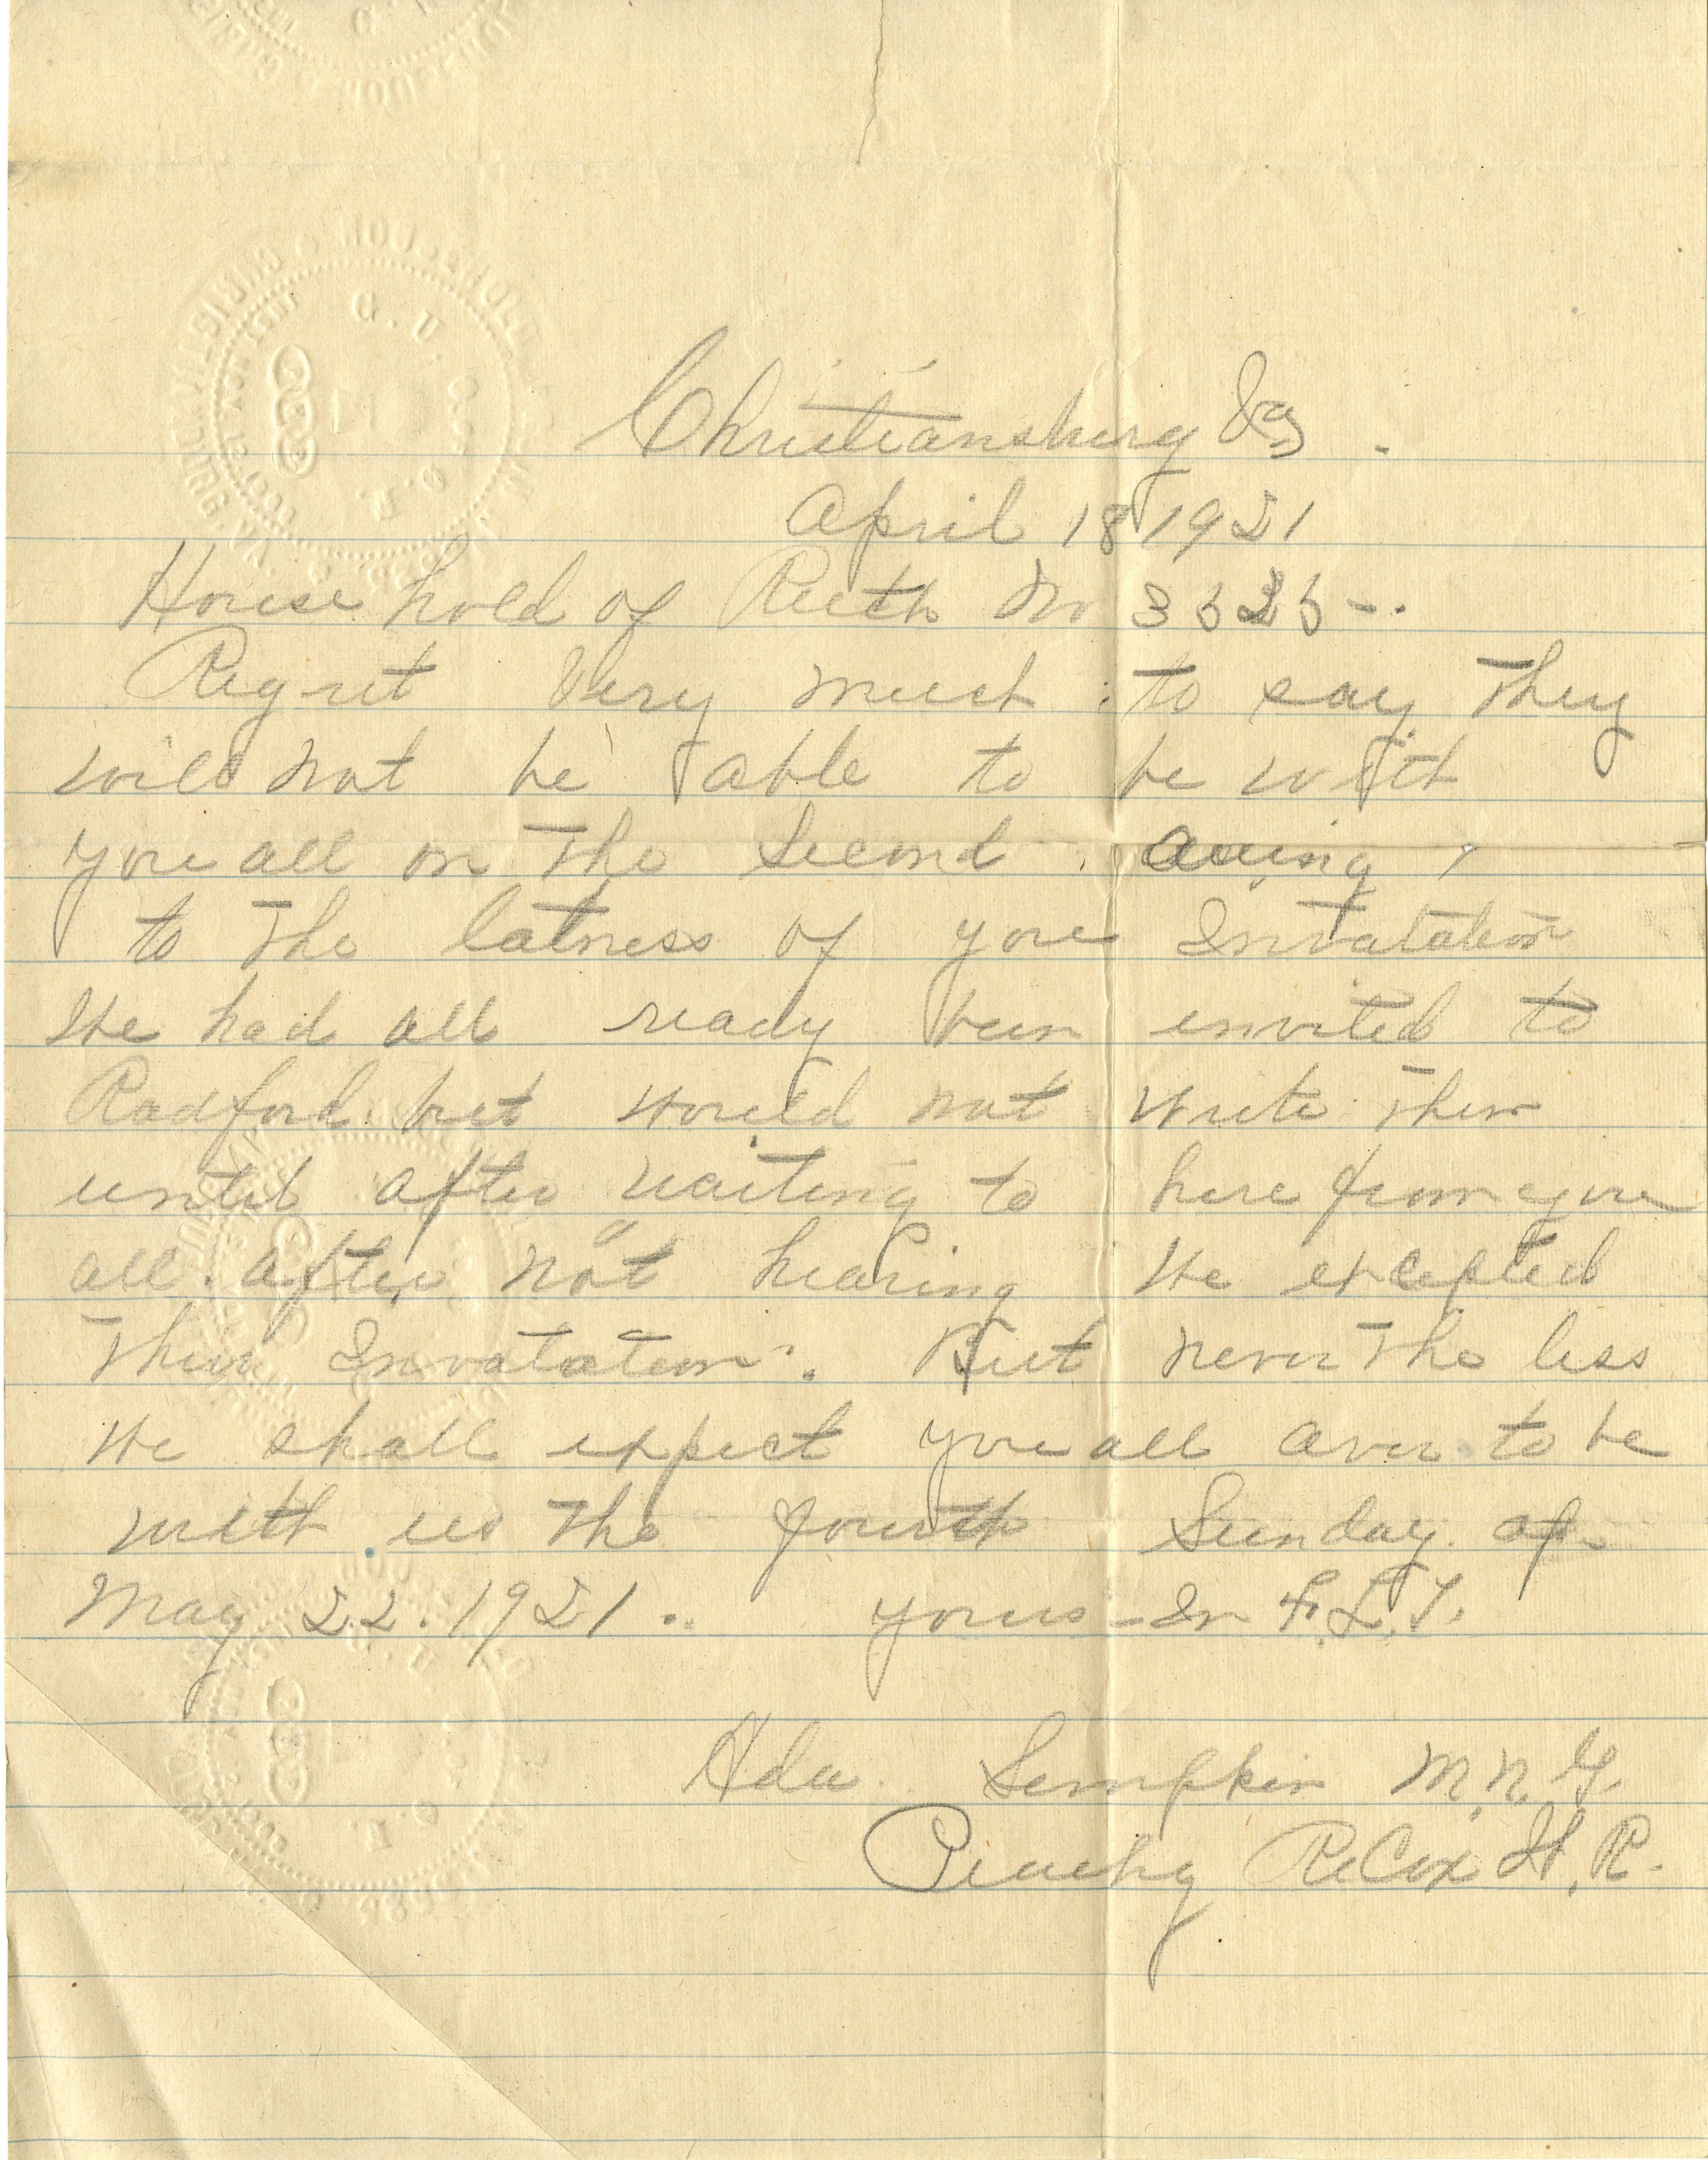 Christiansburg Va.
April 18 1921
House hold of Ruth No
Regret Very much to say They
will not be able to be with
you all on The Second. Awing
to The latness of your Invatation
We had all ready been envited to
Radford. but would not write Them
until after waiting to here from you
all. After not hearing We excepted
Their Invatation. But never The less
We shall expect you all over to be
with us The fourth Sunday. of
May 22. 1921. yours In F. L. T.
Ada Lumpkin M. N. G.
Peachy R Cox W. R.
HOUSEHOLD OF RUTH
G. U. O. O. F.